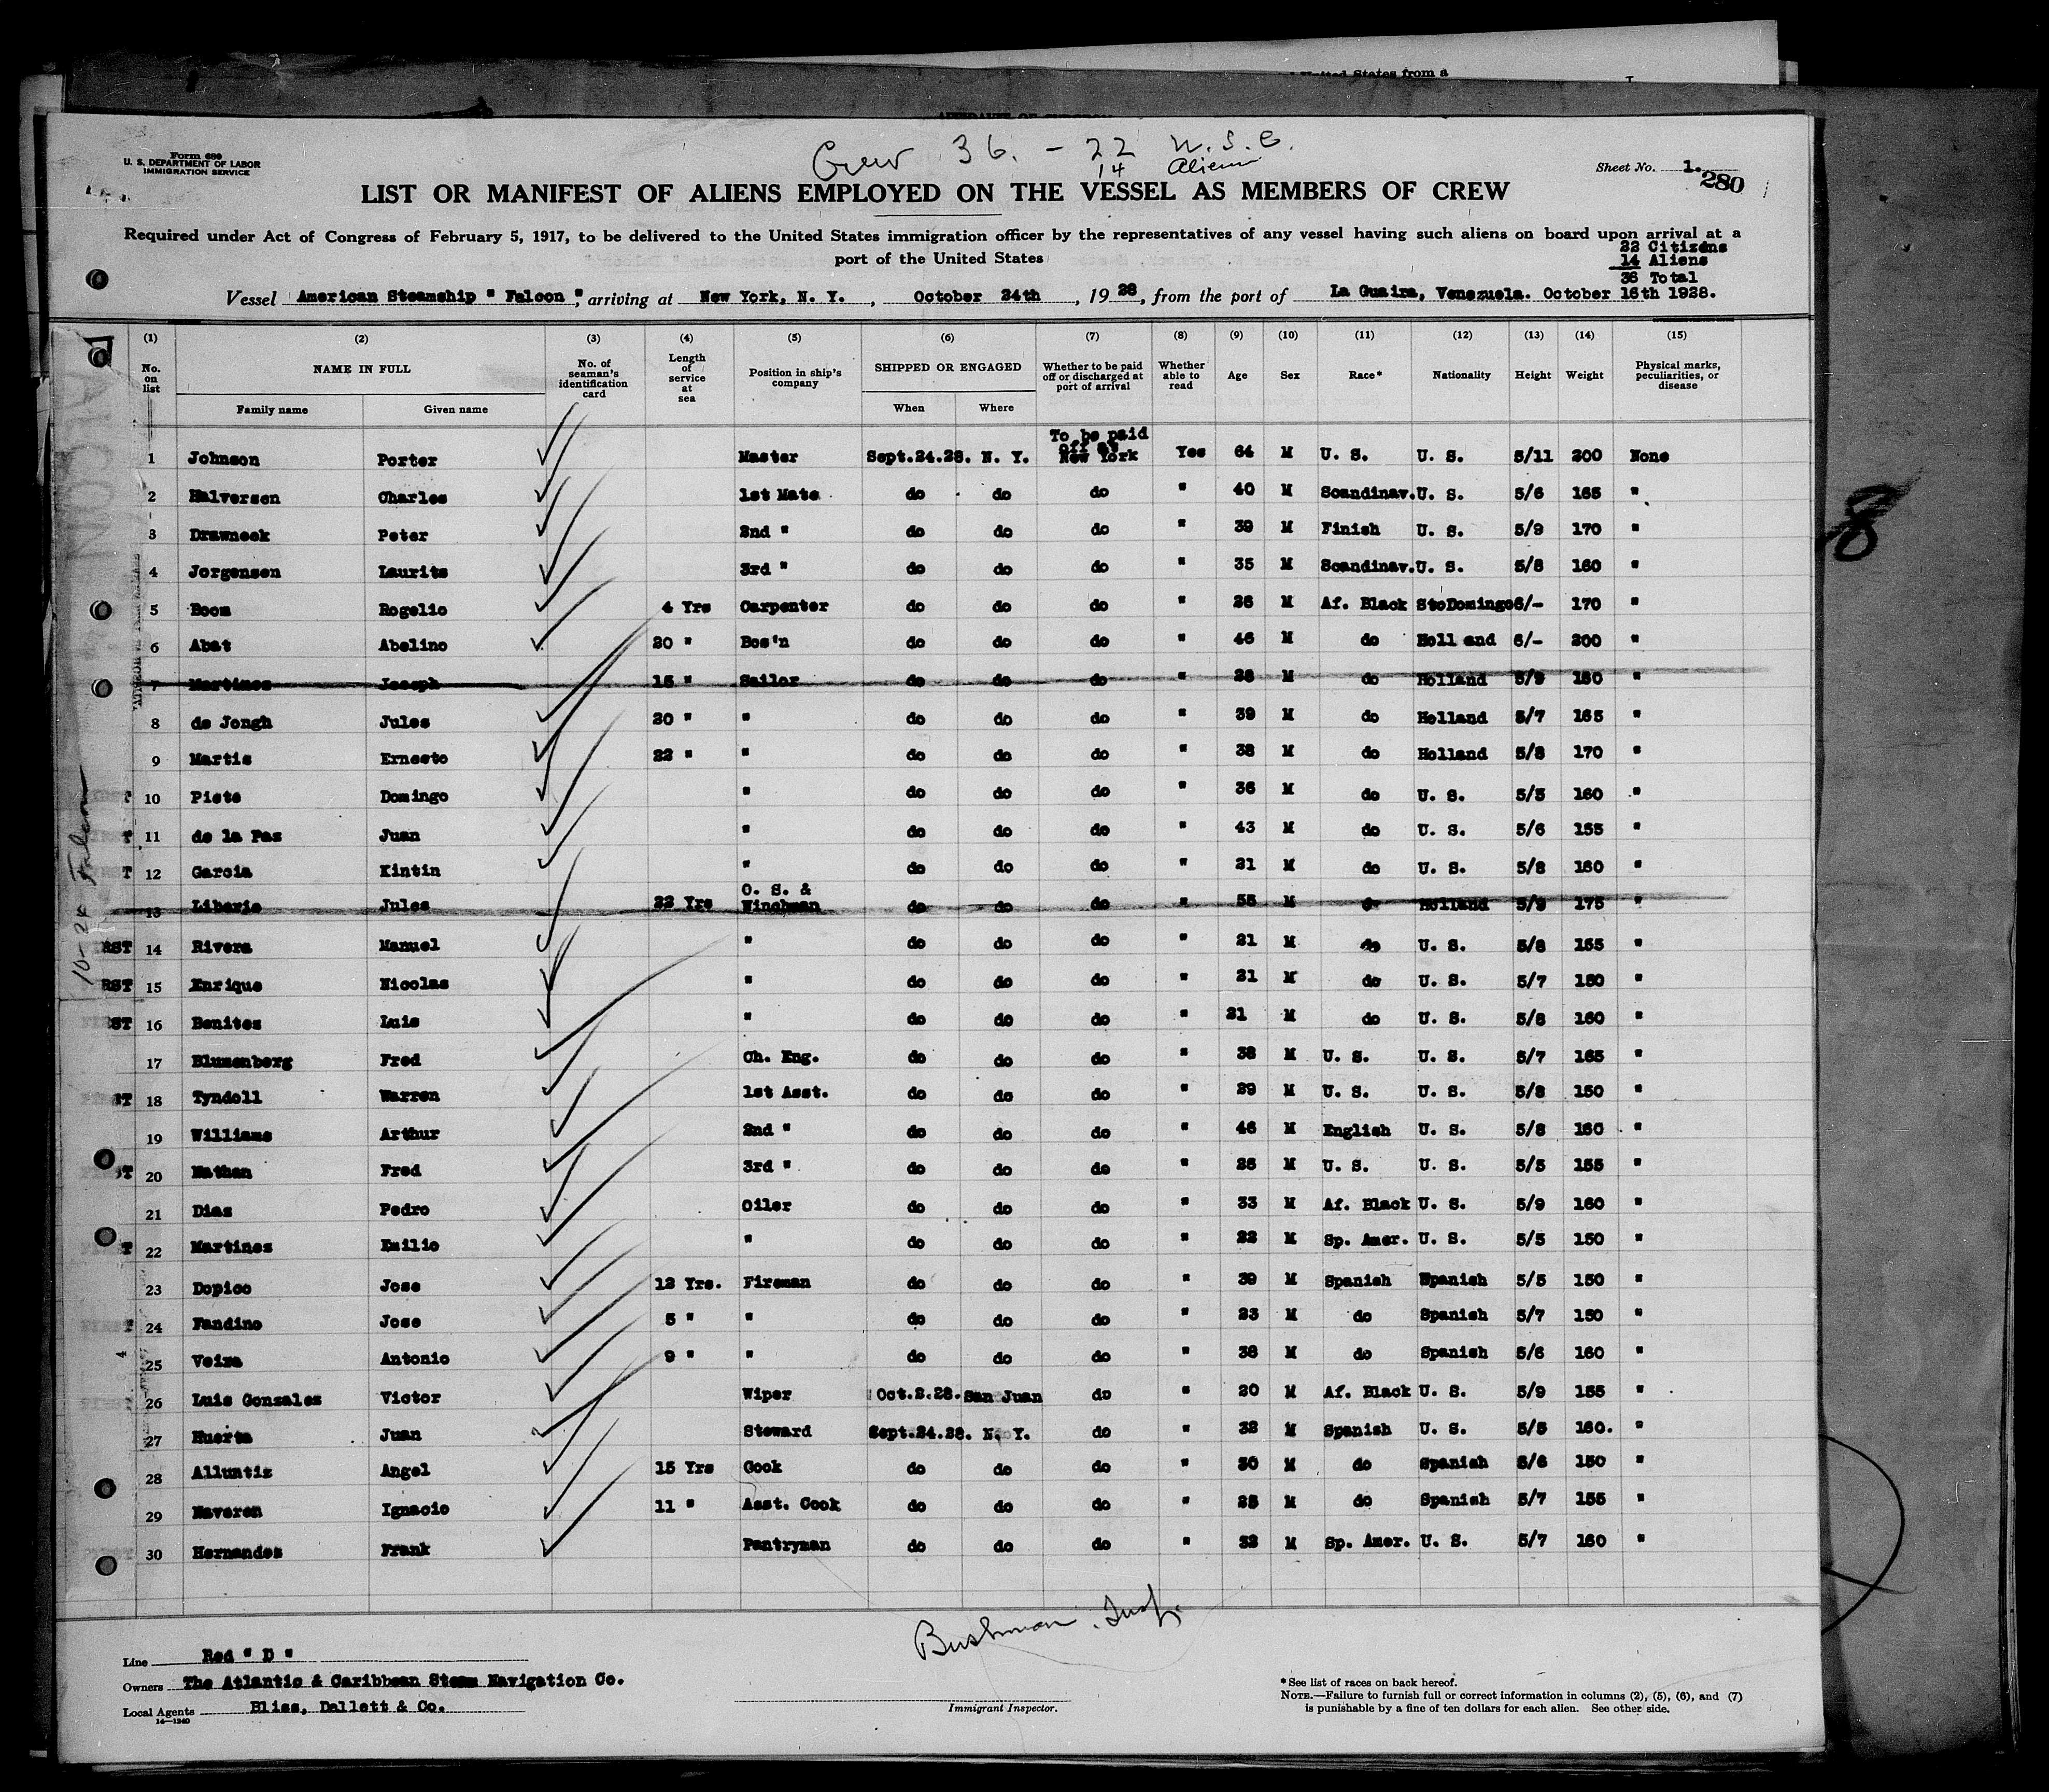 United States from a
Crew 36. - 22 U.S.C.
14 Aliens
Form 680
U. S. DEPARTMENT OF LABOR
IMMIGRATION SERVICE
Sheet No. 1.
280
LIST OR MANIFEST OF ALIENS EMPLOYED ON THE VESSEL AS MEMBERS OF CREW
Required under Act of Congress of February 5, 1917, to be delivered to the United States immigration officer by the representatives of any vessel having such aliens on board upon arrival at a
port of the United States
22 Citizens
14 Aliens
36 Total
Vessel American Steamship "Falcon", arriving at New York, N. Y., October 24th, 1928, from the port of La Guaira, Venezuela. October 16th 1928.
(1) (2) (3) (4) (5) (6) (7) (8) (9) (10) (11) (12) (13) (14) (15)
No. on list NAME IN FULL No. of seaman's identification card Length of service at sea Position in ship's company SHIPPED OR ENGAGED Whether to be paid off or discharged at port of arrival Whether able to read Age Sex Race* Nationality Height Weight Physical marks, peculiarities, or disease
Family name Given name When Where
1 Johnson Porter Master Sept.24.28. N. Y. To be paid off at New York Yes 64 M U. S. U. S. 5/11 200 None
2 Halversen Charles 1st Mate do do do " 40 M Scandinav. U. S. 5/6 165 "
3 Drawneek Peter 2nd " do do do " 39 M Finish U. S. 5/9 170 "
4 Jorgensen Laurits 3rd " do do do " 35 M Scandinav. U. S. 5/8 160 "
5 Boom Rogelio 4 Yrs Carpenter do do do " 26 M Af. Black StoDomingo 6/- 170 "
6 Abat Abelino 20 " Bos'n do do do " 46 M do Holl and 6/- 200 "
7 Martines Joseph 15 " Sailor do do do " 28 M do Holland 5/9 150 "
8 de Jongh Jules 20 " " do do do " 39 M do Holland 5/7 165 "
9 Martis Ernesto 22 " " do do do " 38 M do Holland 5/8 170 "
10 Piete Domingo " do do do " 36 M do U. S. 5/5 160 "
11 de la Paz Juan " do do do " 43 M do U. S. 5/6 155 "
12 Garcia Kintin " do do do " 21 M do U. S. 5/8 160 "
13 Liberie Jules 22 Yrs O. S. & Winchman do do do " 55 M do Holland 5/9 175 "
14 Rivera Manuel " do do do " 21 M do U. S. 5/8 165 "
15 Enrique Nicolas " do do do " 21 M do U. S. 5/7 150 "
16 Benites Luis " do do do " 21 M do U. S. 5/8 160 "
17 Blumenberg Fred Ch. Eng. do do do " 38 M U. S. U. S. 5/7 165 "
18 Tyndell Warren 1st Asst. do do do " 29 M U. S. U. S. 5/8 150 "
19 Williams Arthur 2nd " do do do " 46 M English U. S. 5/8 160 "
20 Nathan Fred 3rd " do do do " 26 M U. S. U. S. 5/5 155 "
21 Dias Pedro Oiler do do do " 33 M Af. Black U. S. 5/9 160 "
22 Martines Emilio " do do do " 22 M Sp. Amer. U. S. 5/5 150 "
23 Dopico Jose 12 Yrs. Fireman do do do " 39 M Spanish Spanish 5/5 150 "
24 Fandino Jose 5 " " do do do " 23 M do Spanish 5/7 150 "
25 Veira Antonio 9 " " do do do " 38 M do Spanish 5/6 160 "
26 Luis Gonzales Victor Wiper Oct.2.28. San Juan do " 20 M Af. Black U. S. 5/9 155 "
27 Huerta Juan Steward Sept.24.28. N. Y. do " 32 M Spanish U. S. 5/5 160. "
28 Alluntiz Angel 15 Yrs Cook do do do " 30 M do Spanish 5/6 150 "
29 Naveren Ignacio 11 " Asst. Cook do do do " 25 M do Spanish 5/7 155 "
30 Hernandes Frank Pantryman do do do " 32 M Sp. Amer. U. S. 5/7 160 "
10-24 Falcon
8
Bushman. Insp.
Immigrant Inspector.
Line Red "D"
Owners The Atlantic & Caribbean Steam Navigation Co.
Local Agents Bliss, Dallett & Co.
14—1240
*See list of races on back hereof.
NOTE.—Failure to furnish full or correct information in columns (2), (5), (6), and (7)
is punishable by a fine of ten dollars for each alien. See other side.